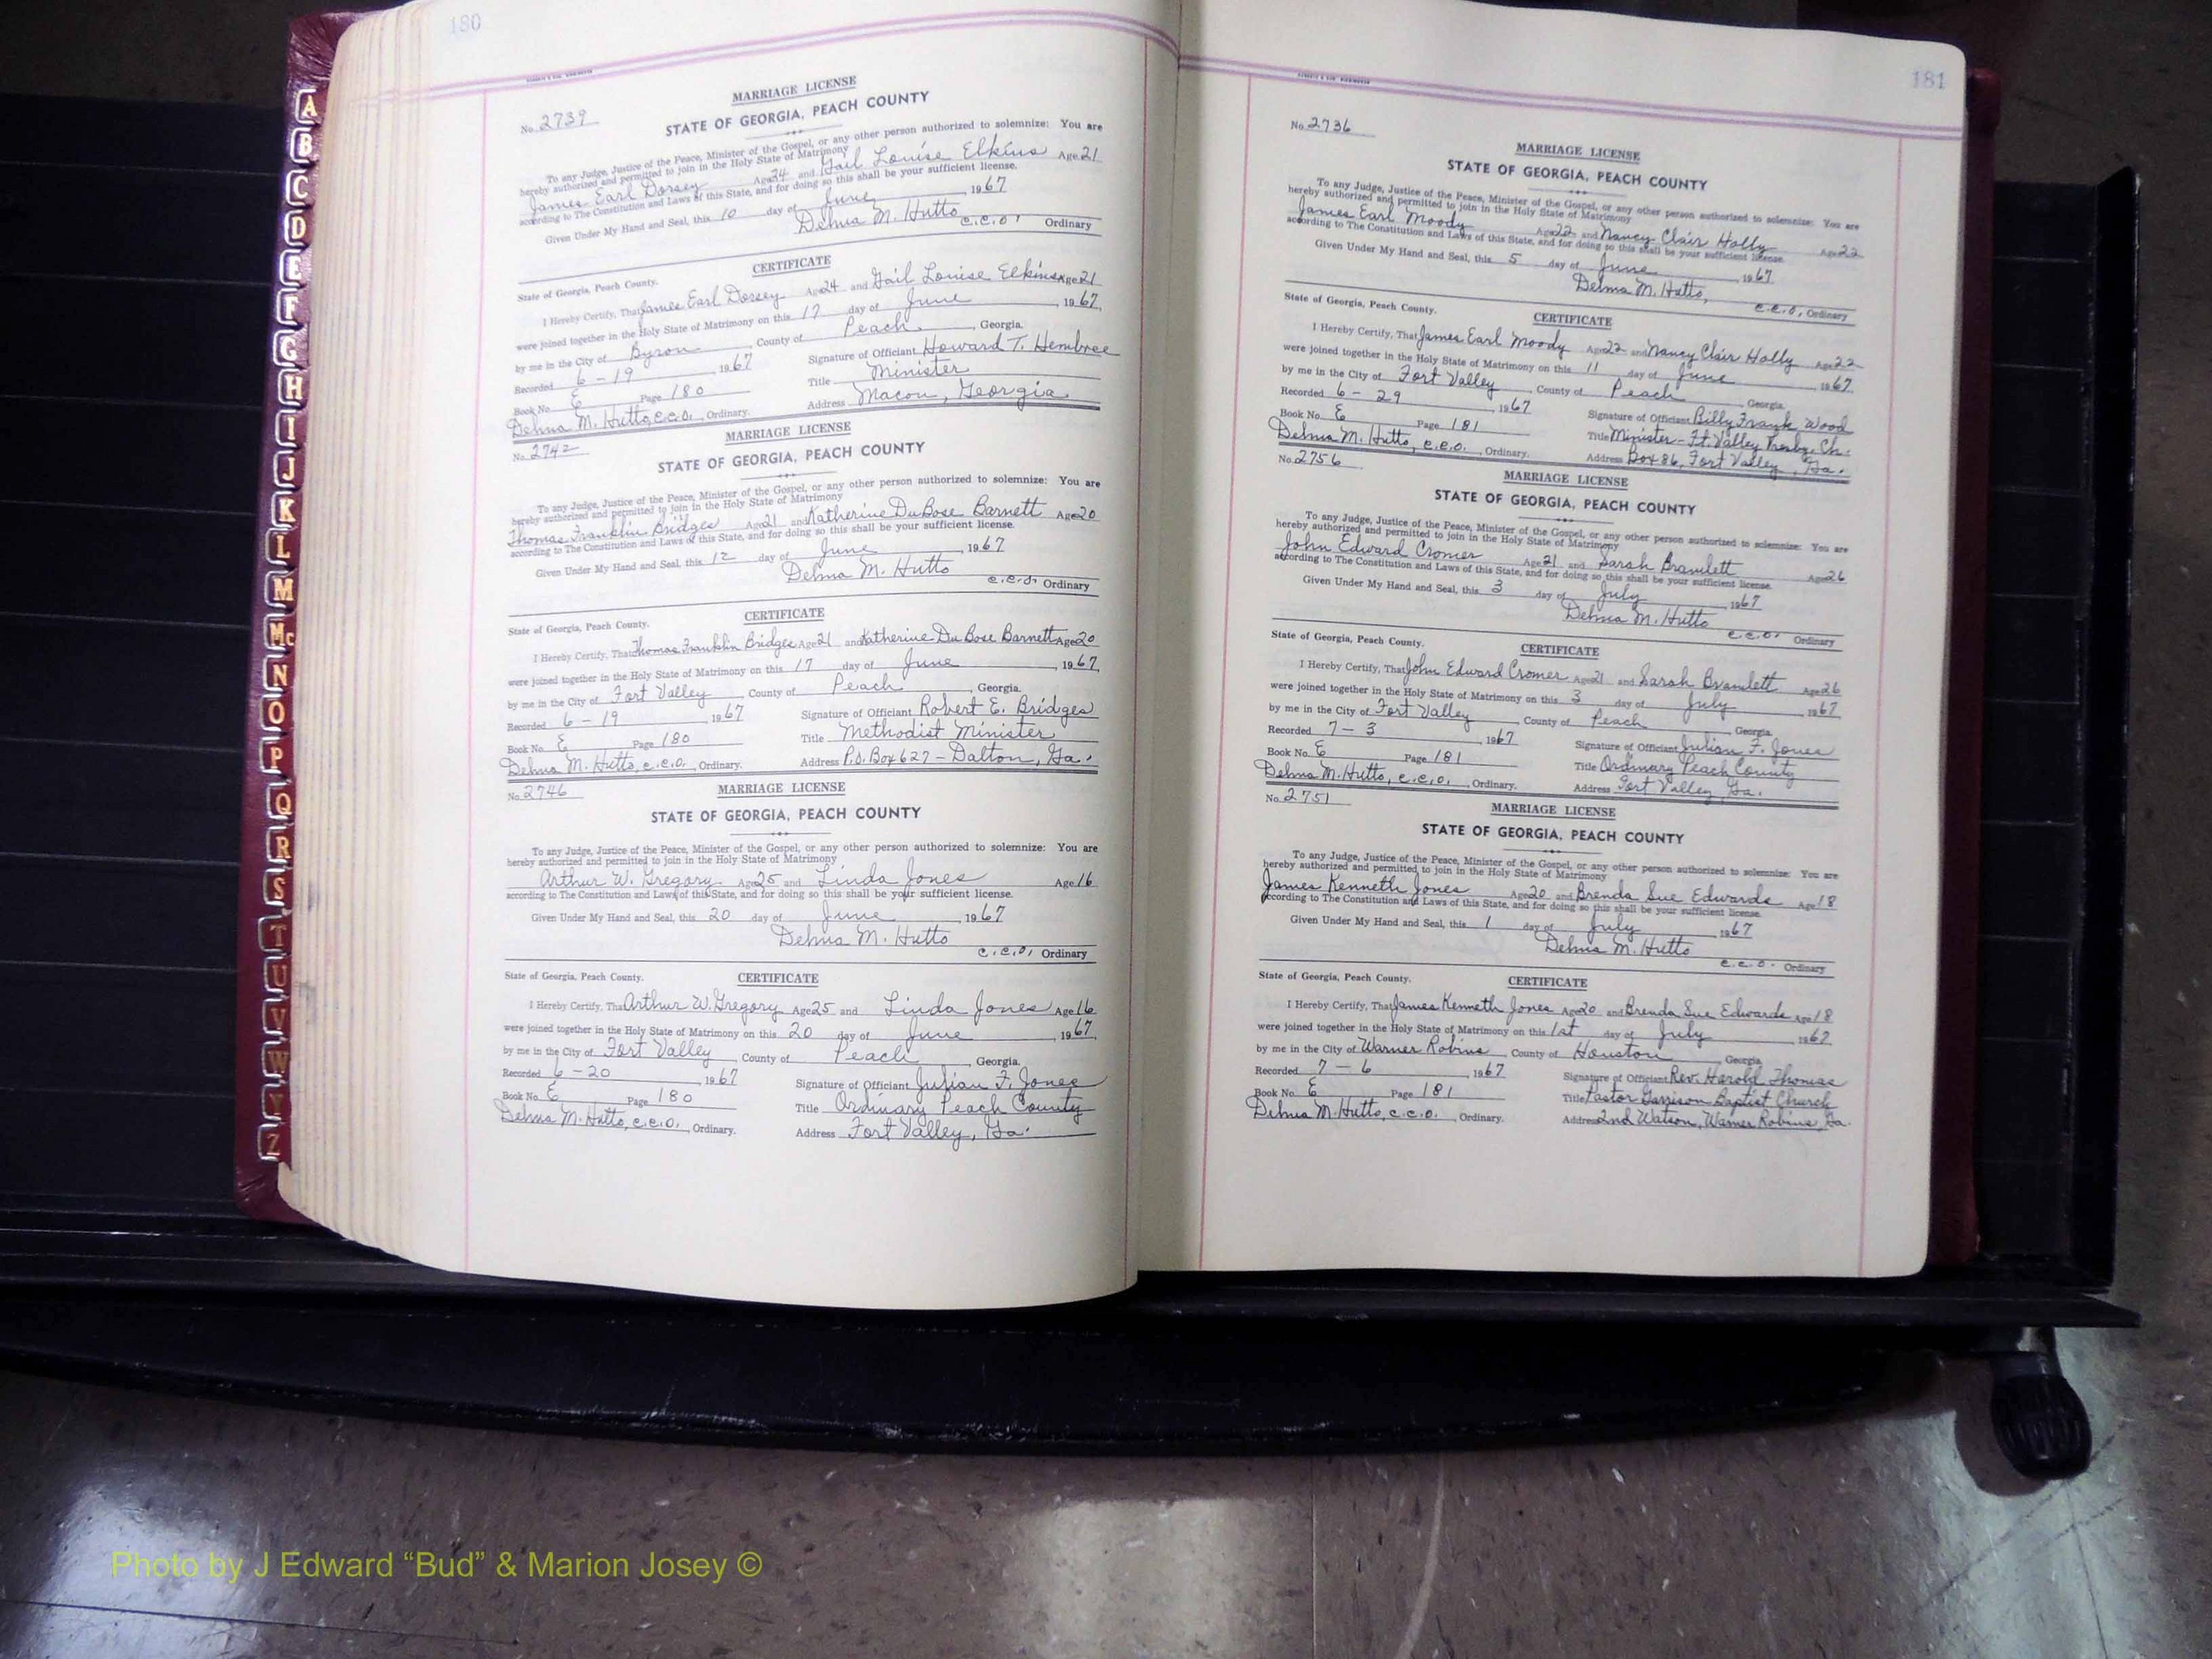 180
No. 2739
MARRIAGE LICENSE
STATE OF GEORGIA, PEACH COUNTY
To any Judge, Justice of the Peace, Minister of the Gospel, or any other person authorized to solemnize: You are
hereby authorized and permitted to join in the Holy State of Matrimony
James Earl Dorsey Age 24 and Gail Louise Elkins Age 21
according to The Constitution and Laws of this State, and for doing so this shall be your sufficient license.
Given Under My Hand and Seal, this 10 day of June, 1967
Delma M. Hutto
C.C.O. Ordinary
CERTIFICATE
State of Georgia, Peach County.
I Hereby Certify, That James Earl Dorsey Age 24 and Gail Louise Elkins Age 21
were joined together in the Holy State of Matrimony on this 17 day of June, 1967,
by me in the City of Byron, County of Peach, Georgia.
Recorded 6-19 1967
Signature of Officiant Howard T. Hembree
Book No. E Page 180
Title Minister
Delma M. Hutto, C.C.O., Ordinary.
Address Macon, Georgia
No. 2742
MARRIAGE LICENSE
STATE OF GEORGIA, PEACH COUNTY
To any Judge, Justice of the Peace, Minister of the Gospel, or any other person authorized to solemnize: You are
hereby authorized and permitted to join in the Holy State of Matrimony
Thomas Franklin Bridges Age 21 and Katherine DuBose Barnett Age 20
according to The Constitution and Laws of this State, and for doing so this shall be your sufficient license.
Given Under My Hand and Seal, this 12 day of June, 1967
Delma M. Hutto
C.C.O. Ordinary
CERTIFICATE
State of Georgia, Peach County.
I Hereby Certify, That Thomas Franklin Bridges Age 21 and Katherine DuBose Barnett Age 20
were joined together in the Holy State of Matrimony on this 17 day of June, 1967,
by me in the City of Fort Valley, County of Peach, Georgia.
Recorded 6-19 1967
Signature of Officiant Robert E. Bridges
Book No. E Page 180
Title Methodist Minister
Delma M. Hutto, C.C.O., Ordinary.
Address P.O. Box 627 - Dalton, Ga.
No. 2746
MARRIAGE LICENSE
STATE OF GEORGIA, PEACH COUNTY
To any Judge, Justice of the Peace, Minister of the Gospel, or any other person authorized to solemnize: You are
hereby authorized and permitted to join in the Holy State of Matrimony
Arthur W. Gregory Age 25 and Linda Jones Age 16
according to The Constitution and Laws of this State, and for doing so this shall be your sufficient license.
Given Under My Hand and Seal, this 20 day of June, 1967
Delma M. Hutto
C.C.O. Ordinary
CERTIFICATE
State of Georgia, Peach County.
I Hereby Certify, That Arthur W. Gregory Age 25 and Linda Jones Age 16
were joined together in the Holy State of Matrimony on this 20 day of June, 1967,
by me in the City of Fort Valley, County of Peach, Georgia.
Recorded 6-20 1967
Signature of Officiant Julian F. Jones
Book No. E Page 180
Title Ordinary Peach County
Delma M. Hutto, C.C.O., Ordinary.
Address Fort Valley, Ga.
181
No. 2736
MARRIAGE LICENSE
STATE OF GEORGIA, PEACH COUNTY
To any Judge, Justice of the Peace, Minister of the Gospel, or any other person authorized to solemnize: You are
hereby authorized and permitted to join in the Holy State of Matrimony
James Earl Moody Age 22 and Nancy Clair Holly Age 22
according to The Constitution and Laws of this State, and for doing so this shall be your sufficient license.
Given Under My Hand and Seal, this 5 day of June, 1967
Delma M. Hutto,
C.C.O., Ordinary
CERTIFICATE
State of Georgia, Peach County.
I Hereby Certify, That James Earl Moody Age 22 and Nancy Clair Holly Age 22
were joined together in the Holy State of Matrimony on this 11 day of June, 1967,
by me in the City of Fort Valley, County of Peach, Georgia.
Recorded 6-29 1967
Signature of Officiant Billy Frank Wood
Book No. E Page 181
Title Minister - Ft. Valley Presby. Ch.
Delma M. Hutto, C.C.O., Ordinary.
Address Box 86, Fort Valley, Ga.
No. 2756
MARRIAGE LICENSE
STATE OF GEORGIA, PEACH COUNTY
To any Judge, Justice of the Peace, Minister of the Gospel, or any other person authorized to solemnize: You are
hereby authorized and permitted to join in the Holy State of Matrimony
John Edward Cromer Age 21 and Sarah Bramlett Age 26
according to The Constitution and Laws of this State, and for doing so this shall be your sufficient license.
Given Under My Hand and Seal, this 3 day of July, 1967
Delma M. Hutto
C.C.O. Ordinary
CERTIFICATE
State of Georgia, Peach County.
I Hereby Certify, That John Edward Cromer Age 21 and Sarah Bramlett Age 26
were joined together in the Holy State of Matrimony on this 3 day of July, 1967
by me in the City of Fort Valley, County of Peach, Georgia.
Recorded 7-3 1967
Signature of Officiant Julian F. Jones
Book No. E Page 181
Title Ordinary Peach County
Delma M. Hutto, C.C.O., Ordinary.
Address Fort Valley, Ga.
No. 2751
MARRIAGE LICENSE
STATE OF GEORGIA, PEACH COUNTY
To any Judge, Justice of the Peace, Minister of the Gospel, or any other person authorized to solemnize: You are
hereby authorized and permitted to join in the Holy State of Matrimony
James Kenneth Jones Age 20 and Brenda Sue Edwards Age 18
according to The Constitution and Laws of this State, and for doing so this shall be your sufficient license.
Given Under My Hand and Seal, this 1 day of July, 1967
Delma M. Hutto
C.C.O. Ordinary
CERTIFICATE
State of Georgia, Peach County.
I Hereby Certify, That James Kenneth Jones Age 20 and Brenda Sue Edwards Age 18
were joined together in the Holy State of Matrimony on this 1st day of July, 1967
by me in the City of Warner Robins, County of Houston, Georgia.
Recorded 7-6 1967
Signature of Officiant Rev. Harold Thomas
Book No. E Page 181
Title Pastor Garrison Baptist Church
Delma M. Hutto, C.C.O., Ordinary.
Address 2nd Watson, Warner Robins, Ga.
A
B
C
D
E
F
G
H
I
J
K
L
M
Mc
N
O
P
Q
R
S
T
U
V
W
Y
Z
Photo by J Edward “Bud” & Marion Josey ©